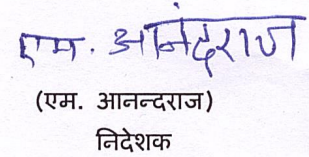 एम. आनंदराज
(एम. आनन्दराज)
निदेशक